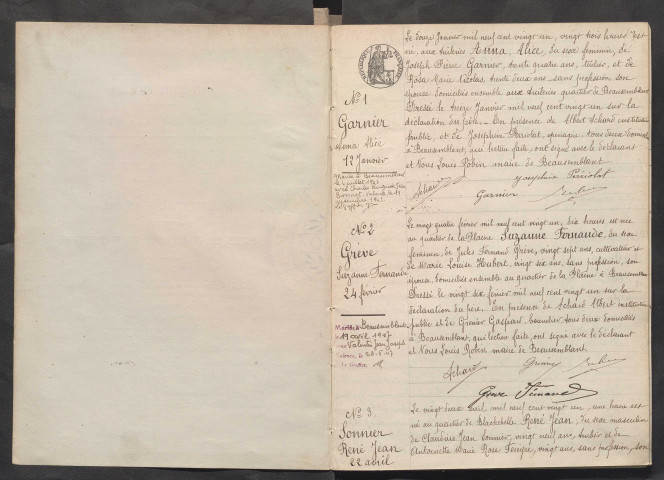 Le douze Janvier mil neuf cent vingt un, vingt trois heures est
né, aux tuileries Anna Alice, du sexe féminin, de
Joseph Pierre Garnier, trente quatre ans, tuilier, et de
Rosa Marie Nicolas, trente deux ans, sans profession son
épouse domiciliés ensemble aux tuileries quartier de Beausemblant
Dressé le treize Janvier mil neuf cent vingt un sur la
déclaration du père. En présence de Albert Achard instituteur
public, et de Joséphine Périolat, tous deux domiciliés
à Beausemblant, qui lecture faite, ont signé avec le déclarant
et Nous Louis Robin maire de Beausemblant
Joséphine Périolat
Achard Garnier
No 1
Garnier
Anna Alice
12 Janvier
Mariée à Beausemblant
le juillet
avec Charles
No 2
Grève
Suzanne Fernande
24 février
Mariée à Beausemblant
le 19 avril 1947
avec Valentin Jean Joseph
Le vingt quatre février mil neuf cent vingt un, dix heures est née
au quartier de la Plaine Suzanne Fernande, du sexe
féminin, de Jules Fernand Grève, vingt sept ans, cultivateur et
de Marie Louise Hubert, vingt six ans, sans profession, son
épouse, domiciliés ensemble au quartier de la Plaine à Beausemblant
Dressé le vingt six février mil neuf cent vingt un sur la
déclaration du père. En présence de Achard Albert instituteur
public et de Grenier Gaspard, tous deux domiciliés
à Beausemblant, qui lecture faite, ont signé avec le déclarant
et Nous Louis Robin maire de Beausemblant
Achard
Grève Fernand
No 3
Sonnier
René Jean
22 avril
Le vingt deux avril mil neuf cent vingt un, une heure est
né au quartier de Blachebelle René Jean, du sexe masculin
de Claudius Jean Sonnier, vingt neuf ans, et de
Antoinette Marie Rose vingt ans, sans profession, son